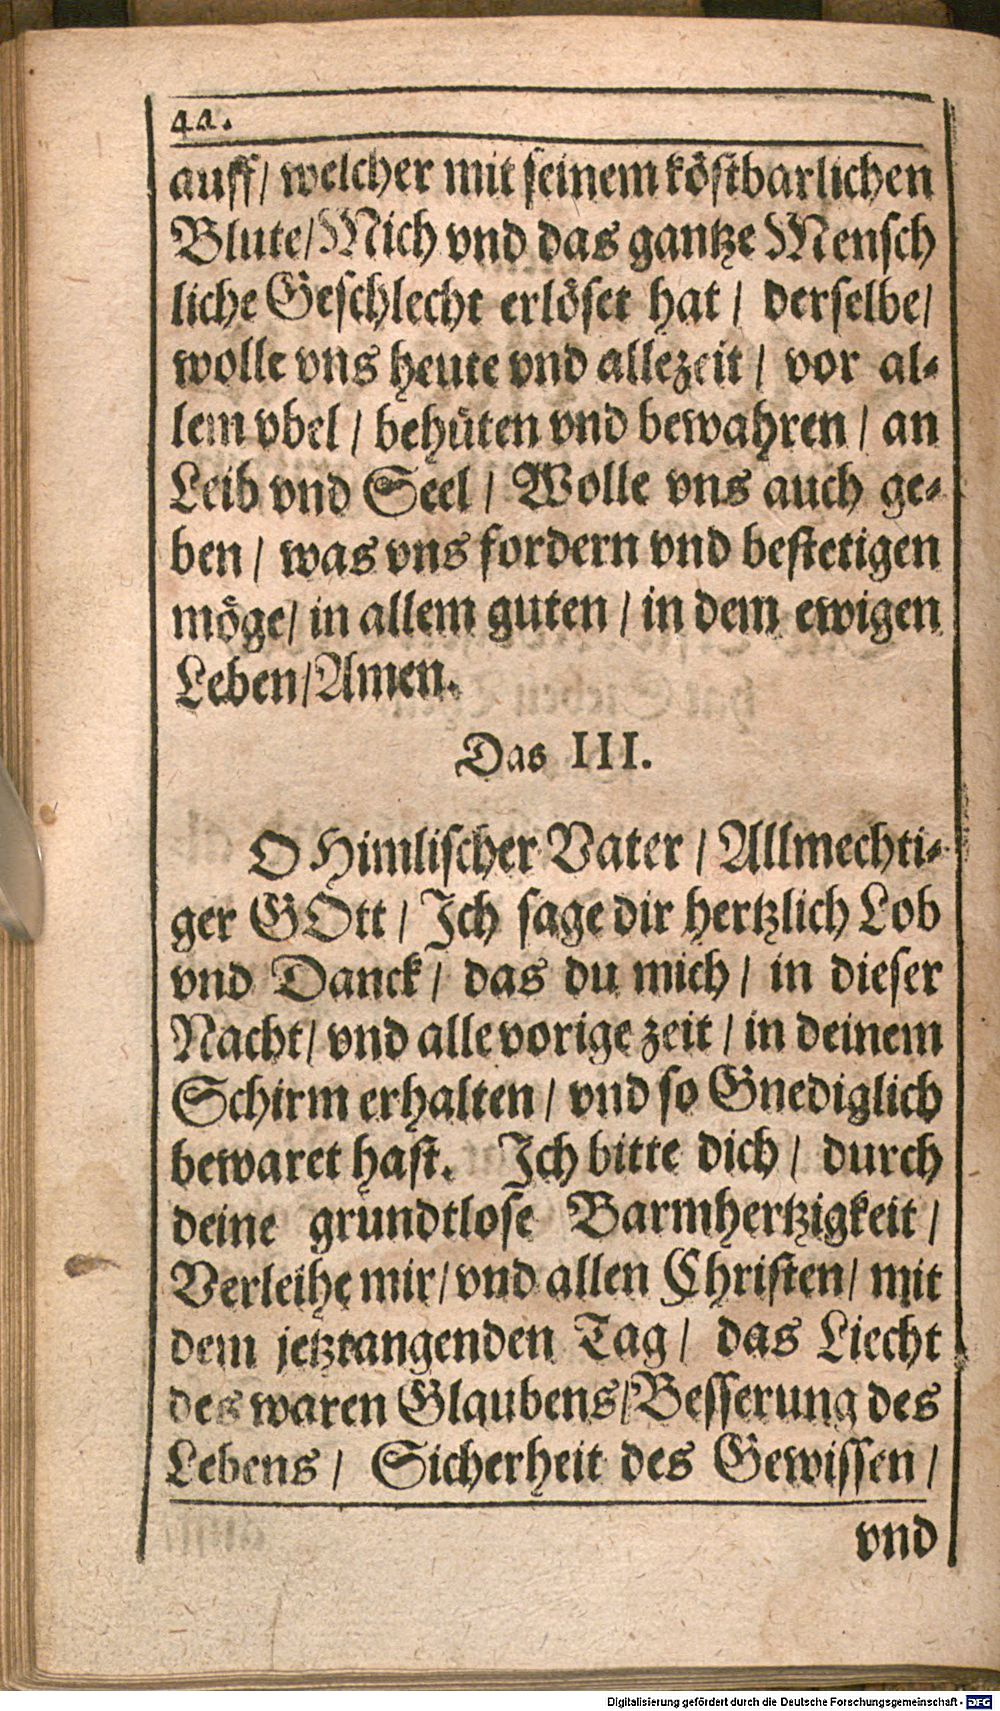 44.
auff/ welcher mit seinem köstbarlichen
Blute/Mich vnd das gantze Mensch
liche Geschlecht erlöset hat / derselbe/
wolle vns heute vnd allezeit / vor al-
lem vbel / behüten vnd bewahren / an
Leib vnd Seel / Wolle vns auch ge-
ben / was vns fordern vnd bestetigen
möge/ in allem guten / in dem ewigen
Leben/Amen.
Das III.
O Himlischer Vater / Allmechti-
ger GOtt / Ich sage dir hertzlich Lob
vnd Danck/ das du mich/ in dieser
Nacht/ vnd alle vorige zeit / in deinem
Schirm erhalten / vnd so Gnediglich
bewaret hast. Ich bitte dich / durch
deine grundtlose Barmhertzigkeit /
Verleihe mir/ vnd allen Christen/ mit
dem jetztangenden Tag / das Liecht
des waren Glaubens/Besserung des
Lebens / Sicherheit des Gewissen /
vnd
Digitalisierung gefördert durch die Deutsche Forschungsgemeinschaft - DFG